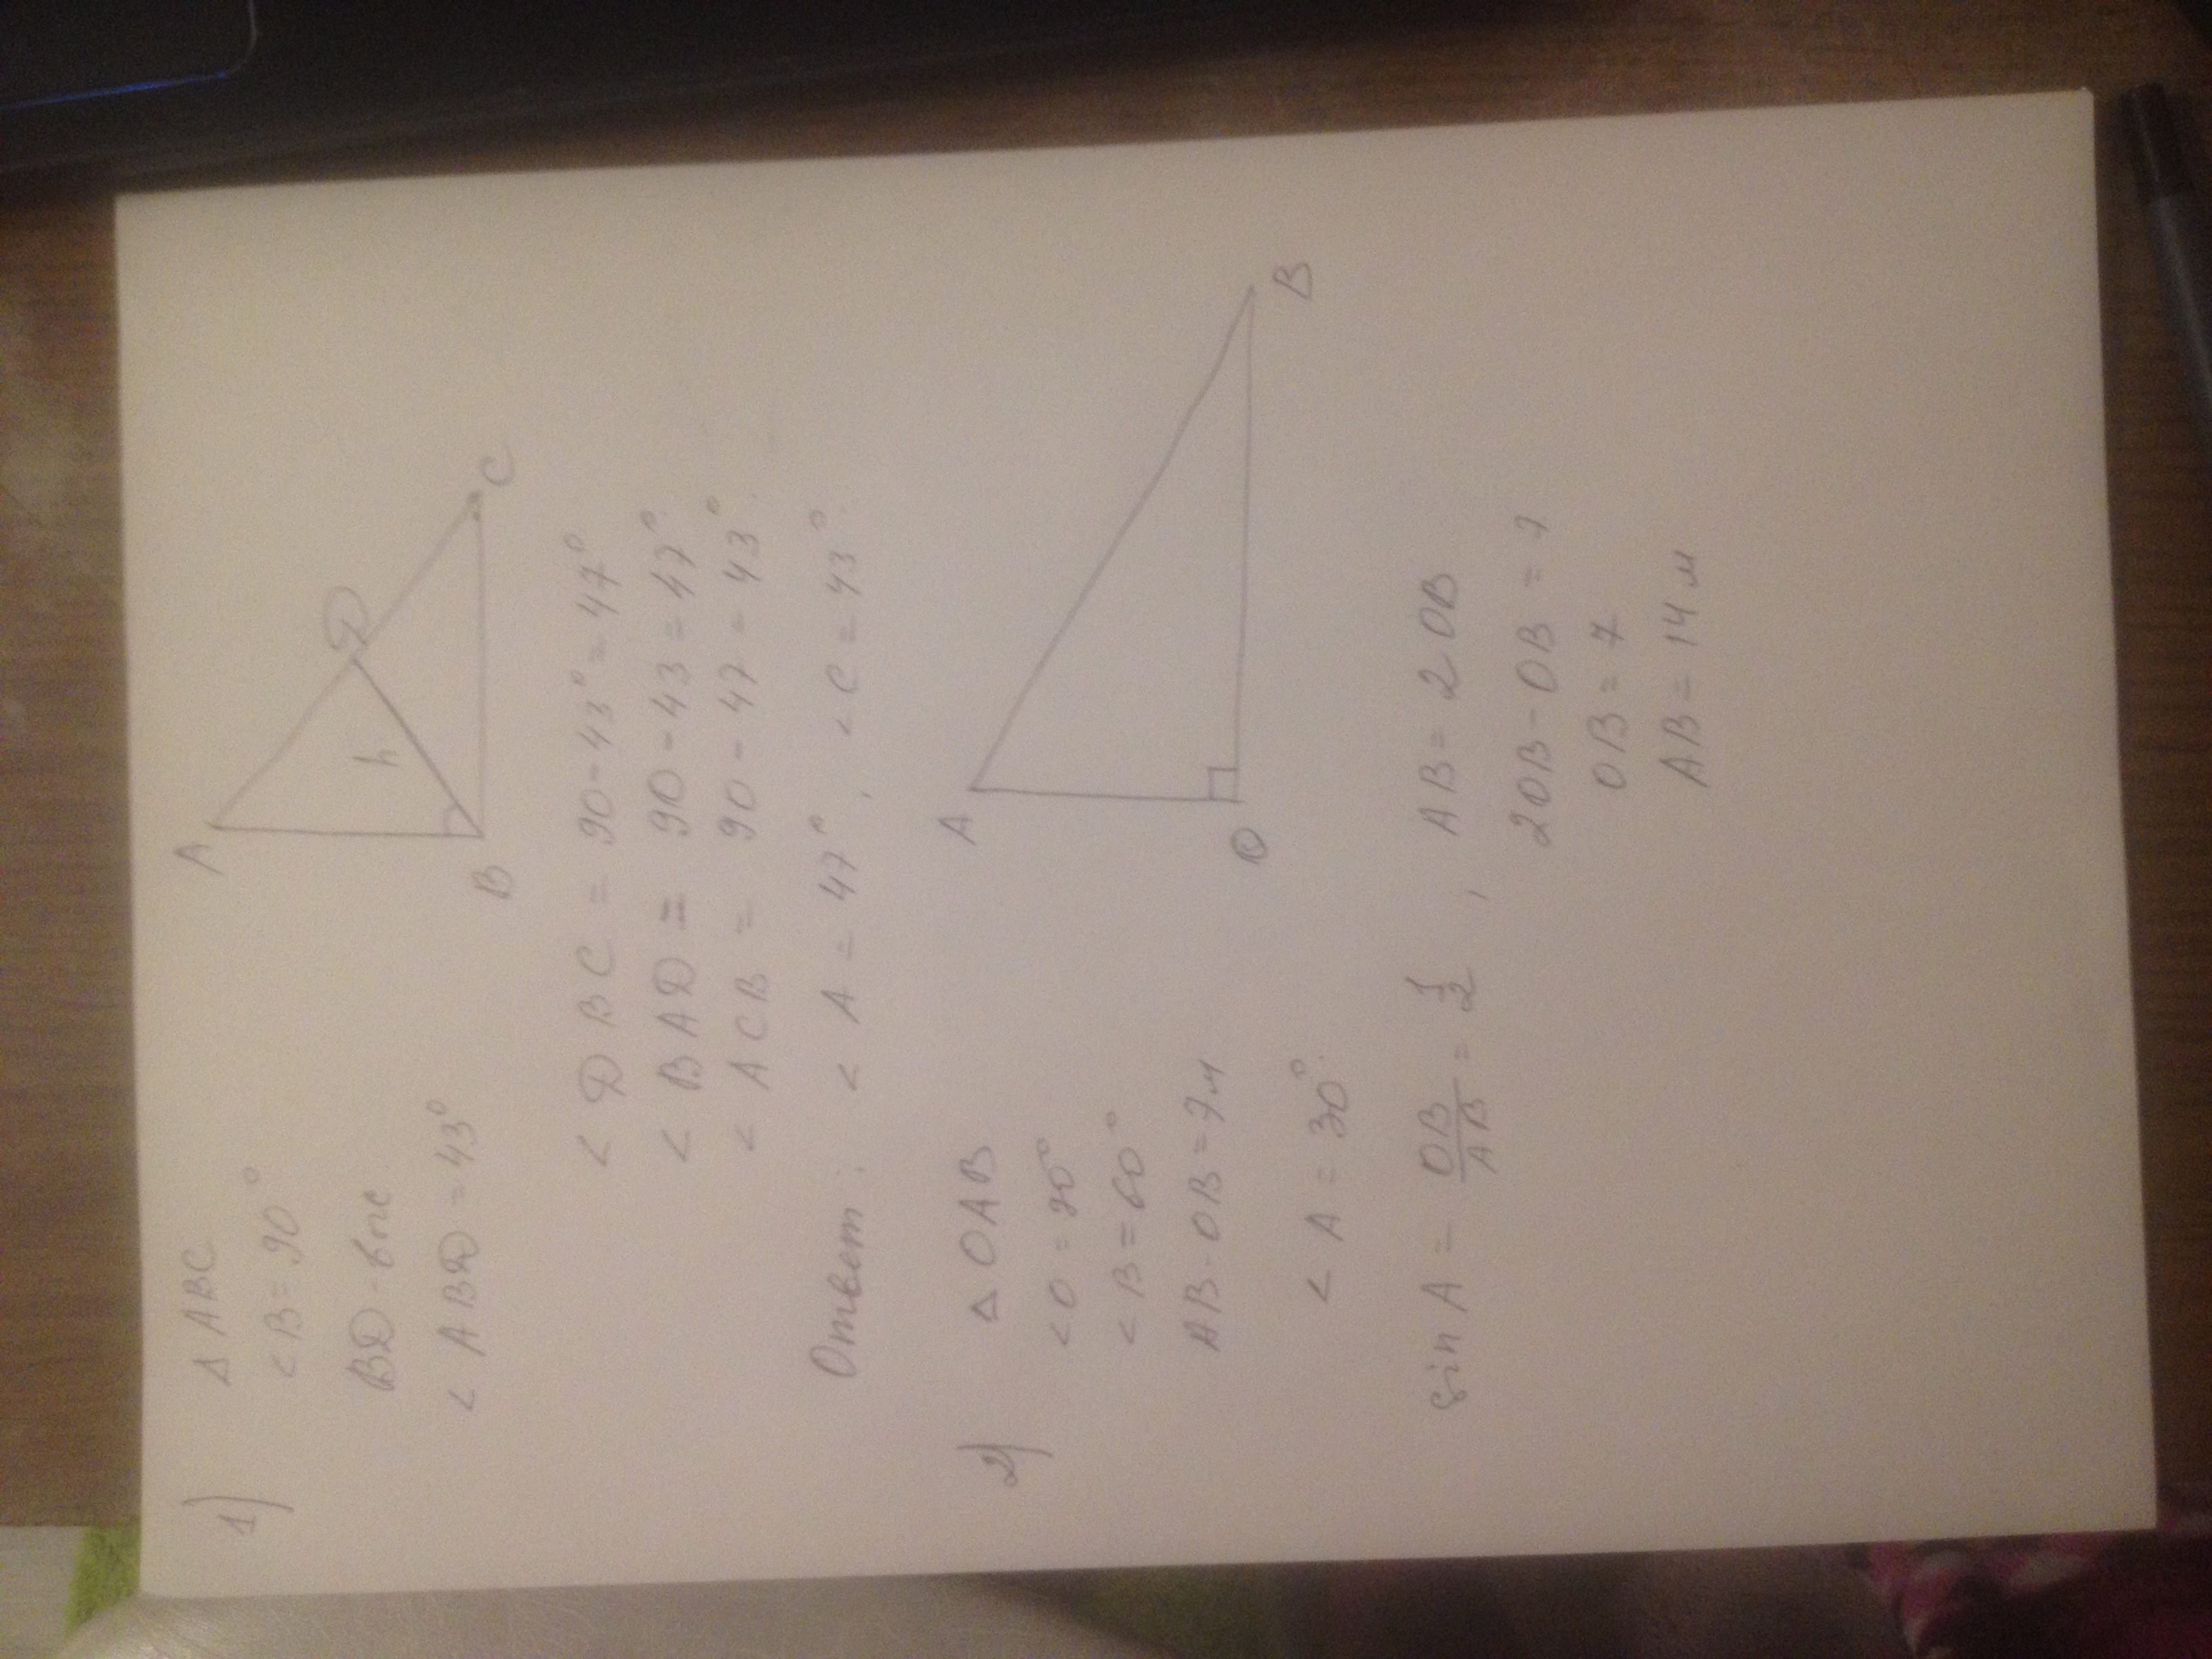 1)
Δ ABC
< B = 90°
BD - выс
< ABD = 43°
A
D
h
B
C
< DBC = 90 - 43° = 47°
< BAD = 90 - 43 = 47°
< ACB = 90 - 47 = 43°
Ответ: < A = 47°, < C = 43°.
2)
Δ OAB
< O = 90°
< B = 60°
AB - OB = 7 м
A
O
B
< A = 30°.
sin A = OB/AB = 1/2, AB = 2 OB
2OB - OB = 7
OB = 7
AB = 14 м